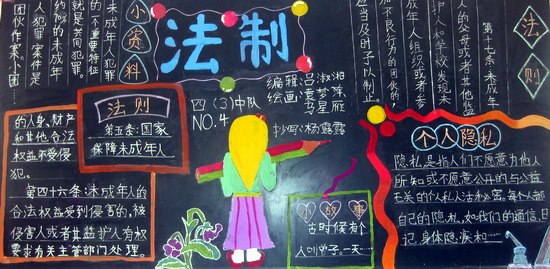 小资料
未成年人犯罪
的一个重要特征
就是共同犯罪。
约70%的未成年
人犯罪案件是
团伙作案。小团…
法制
四(3)中队
NO.4
编辑:吕淑湘
绘画:
抄写:杨露露
法则
第十七条:未成年
人的父母或者其他监
护人和学校发现未
成年人组织或者参
加不良行为的团伙的,
应当及时予以制止。
法则
第五条:国家
保障未成年人
的人身、财产
和其他合法
权益不受侵
犯。
第四十六条:未成年人的
合法权益受到侵害的,被
侵害人或者其监护人有权
要求有关主管部门处理。
小故事
古时候有个
人叫
一天…
个人隐私
隐私是指人们不愿意为他人
所知或不愿意公开的与公益
无关的个人私人法秘密,每个人都有
自己的隐私,如我们的通信、日
记、身体隐疾和……